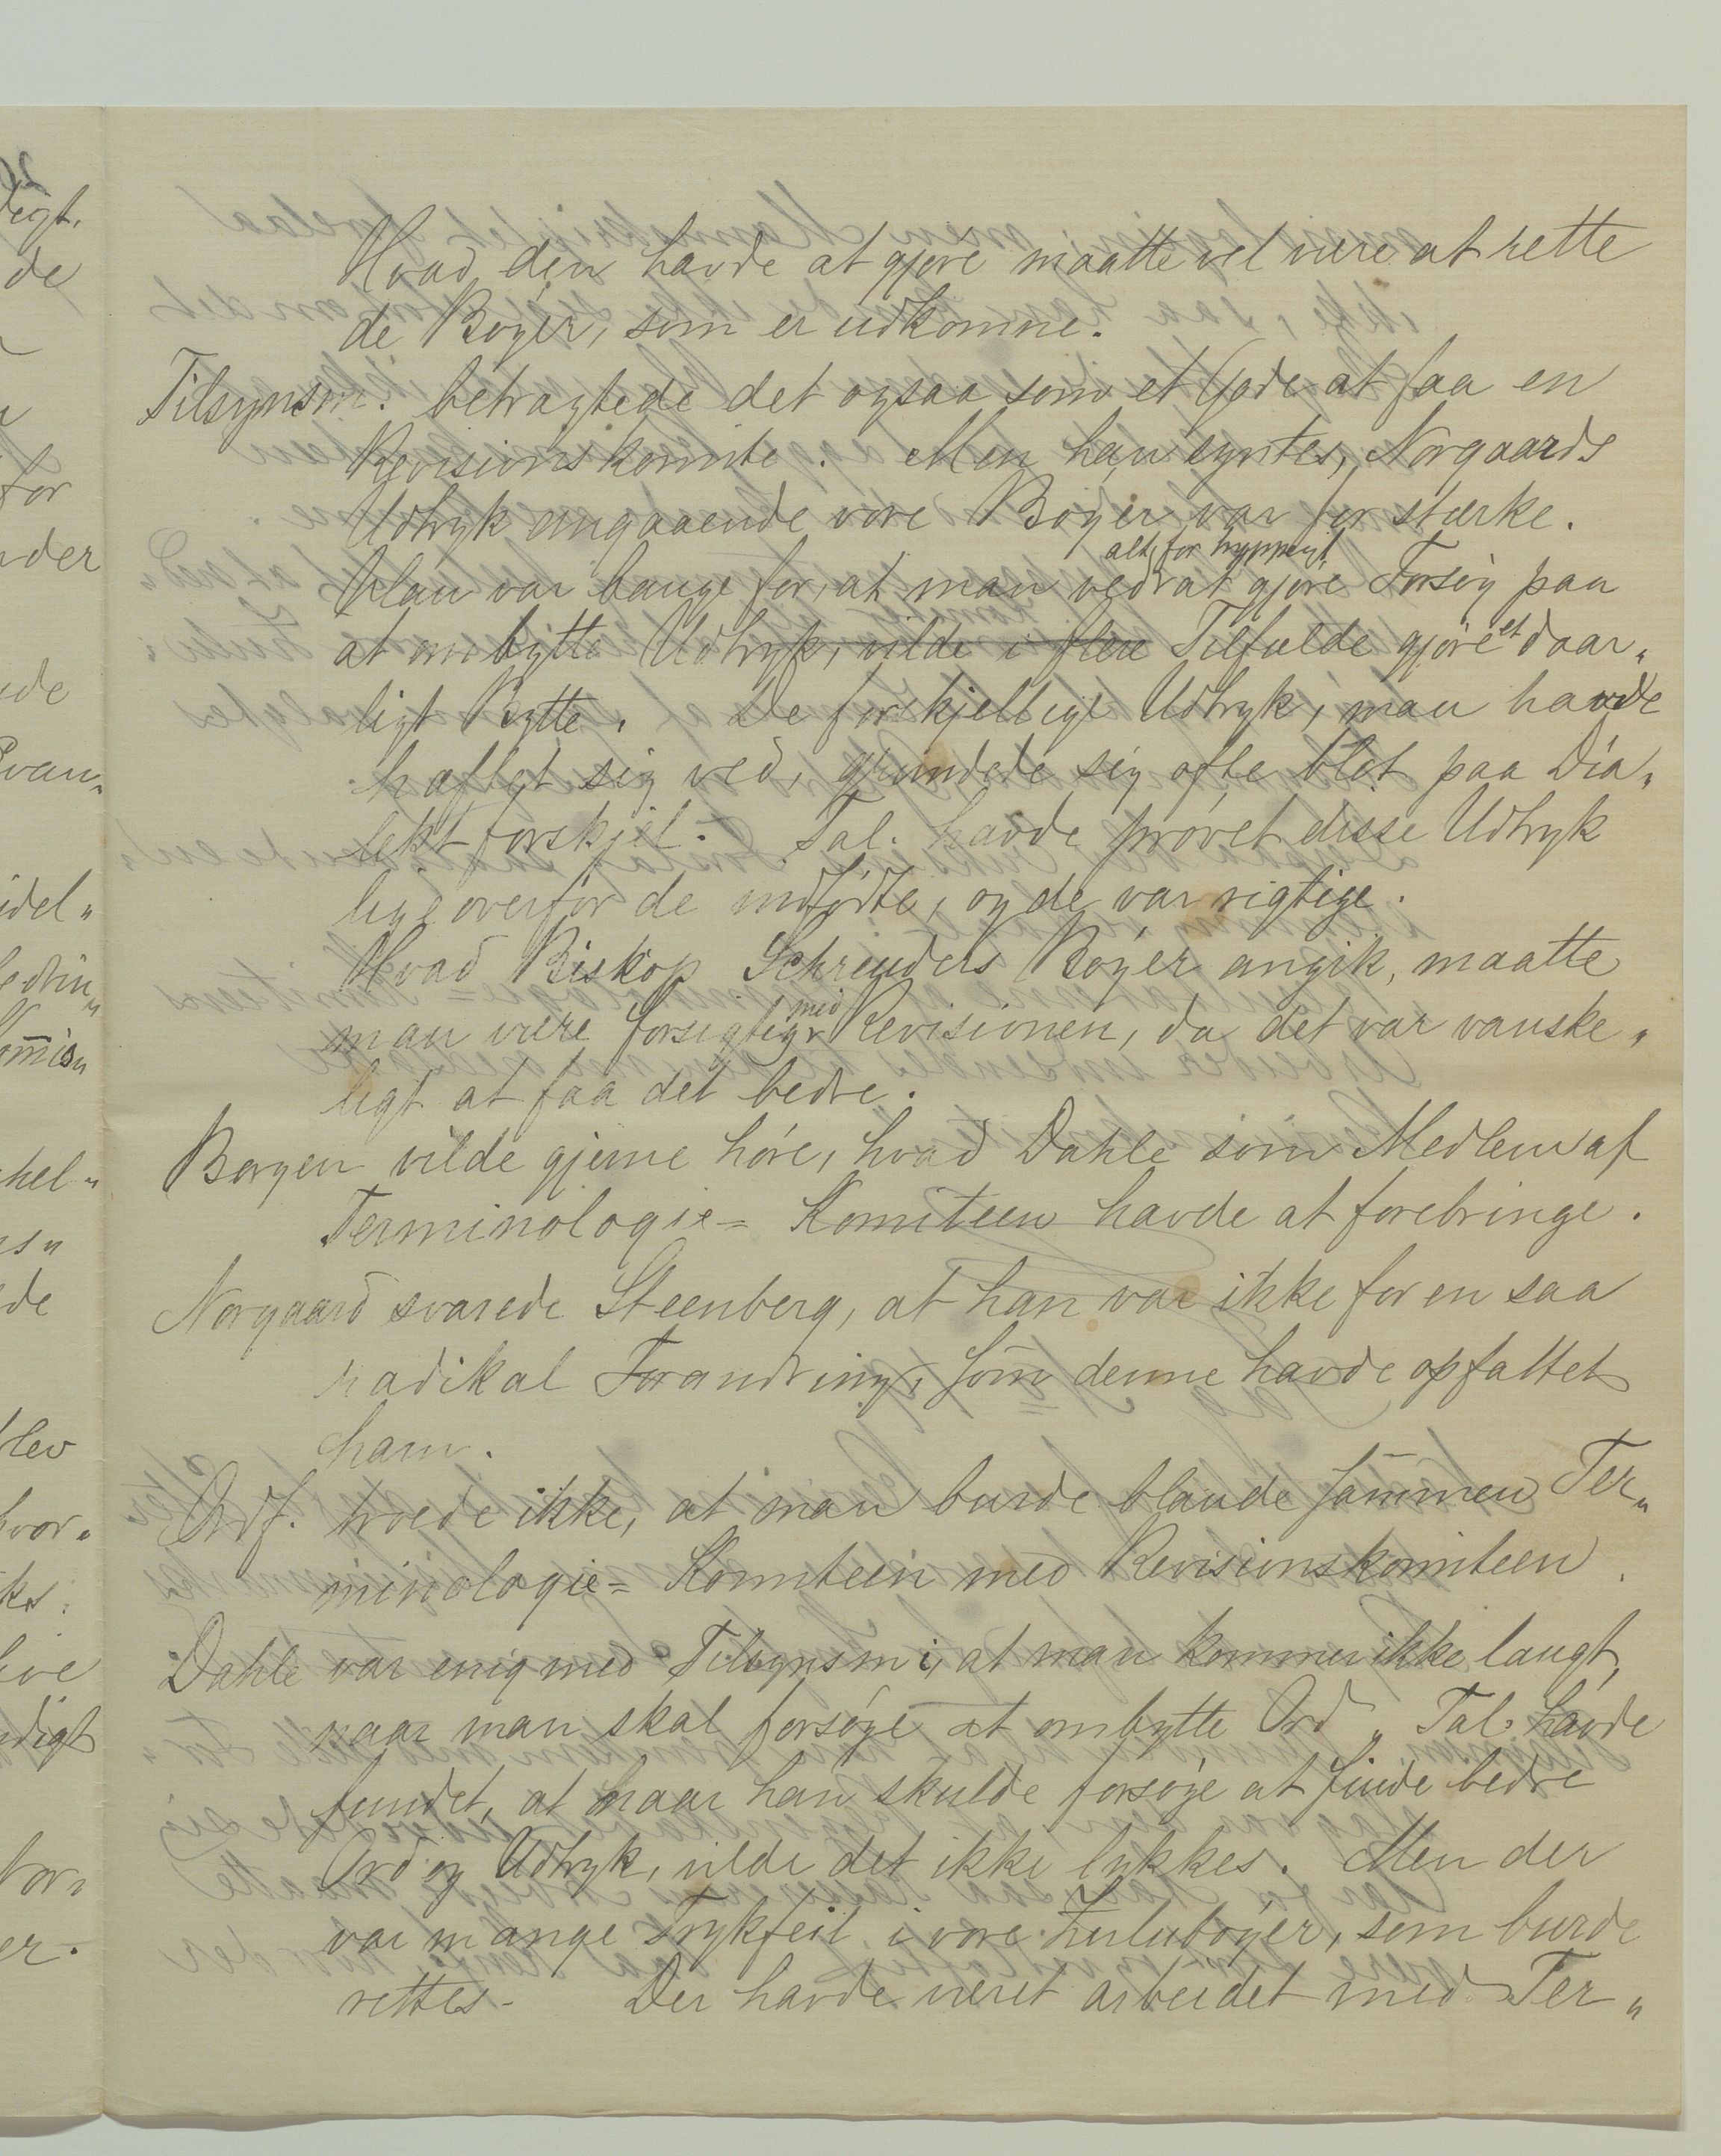 Hvad den havde at gjøre maatte vel være at rette
de Bøger, som er udkomne.
Tilsynsm. betragtede det ogsaa som et Gode at faa en
Revisionskomite. Men han syntes, Norgaards
Udtryk angaaende vore Bøger var for stærke.
alt for hyppigt
Han var bange for, at man ved at gjøre Forsøg paa
at ombytte Udtryk, vilde i flere Tilfælde gjøre et daar„
ligt Bytte. De forskjellige Udtryk, man havde
hæftet sig ved, grundede sig ofte blot paa Dia„
lektforskjel. Tal. havde prøvet disse Udtryk
ligeoverfor de indfødte, og de var rigtige.
Hvad Biskop Schreuders Bøger angik, maatte
man være forsigtig med Revisionen, da det var vanske„
ligt at faa det bedre.
Borgen vilde gjerne høre, hvad Dahle som Medlem af
Terminologie= Komiteen havde at forebringe.
Norgaard svarede Steenberg, at han var ikke for en saa
radikal Forandring, som denne havde opfattet
ham.
Ordf. troede ikke, at man burde blande sammen Ter„
minologie= Komiteen med Revisionskomiteen.
Dahle var enig med Tilsynsm i, at man kommer ikke langt,
naar man skal forsøge at ombytte Ord„ Tal. havde
fundet, at naar han skulde forsøge at finde bedre
Ord og Udtryk, vilde det ikke lykkes. Men der
var mange Trykfeil i vore Zulubøger, som burde
rettes. Der havde været arbeidet med Ter„